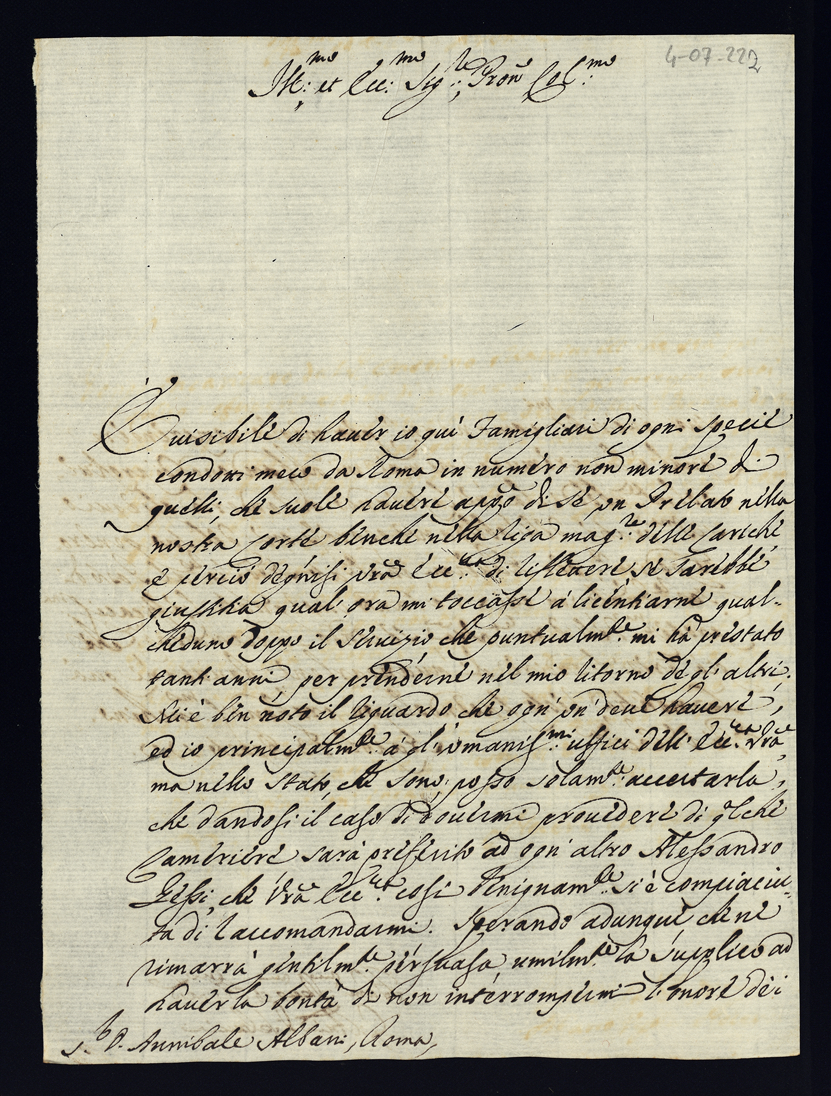 4-07-222
Ill:mo et Ecc:mo Sig:re Pron Col:mo
È visibile di haver io quì Famigliari di ogni specie
condotti meco da Roma in numero non minore di
quelli, che suole havere appo di sè un Prelato nella
nostra Corte benche nella riga mag:re delle Cariche,
e perciò degnisi vra Ecc:za di riflettere se sarebbe
giustitia qual'ora mi toccasse à licentiarne qual-
cheduno doppo il servizio che puntualm:te mi hà prestato
tanti anni, per prenderne nel mio ritorno degl'altri.
Mi è ben noto il riguardo che ogn'un deve havere,
ed io principalm:te à gl'umaniss:mi uffici dell'Ecc:za Vra,
ma nello stato, che sono, posso solam:te accertarla,
che dandosi il caso di dovermi provedere di qlche
Cameriere sarà preferito ad ogn'altro Alessandro
Gessi, che Vra Ecc:za così benignam:te si è compiaciu-
ta di raccomandarmi. Sperando adunque che ne
rimarrà gentilm:te persuasa, umilm:te la supplico ad
haver la bontà di non interrompermi l'onore dei
S.r D. Annibale Albani, Roma,